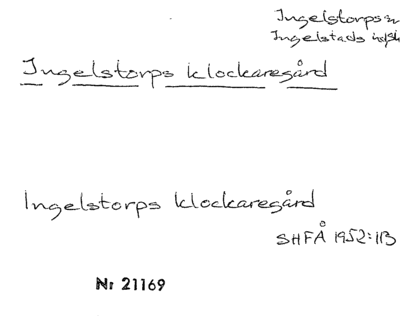 Ingelstorps sn
Ingelstads
Ingelstorps klockaregård
Ingelstorps klockaregård
SHFÅ 1952:113
Nr 21169